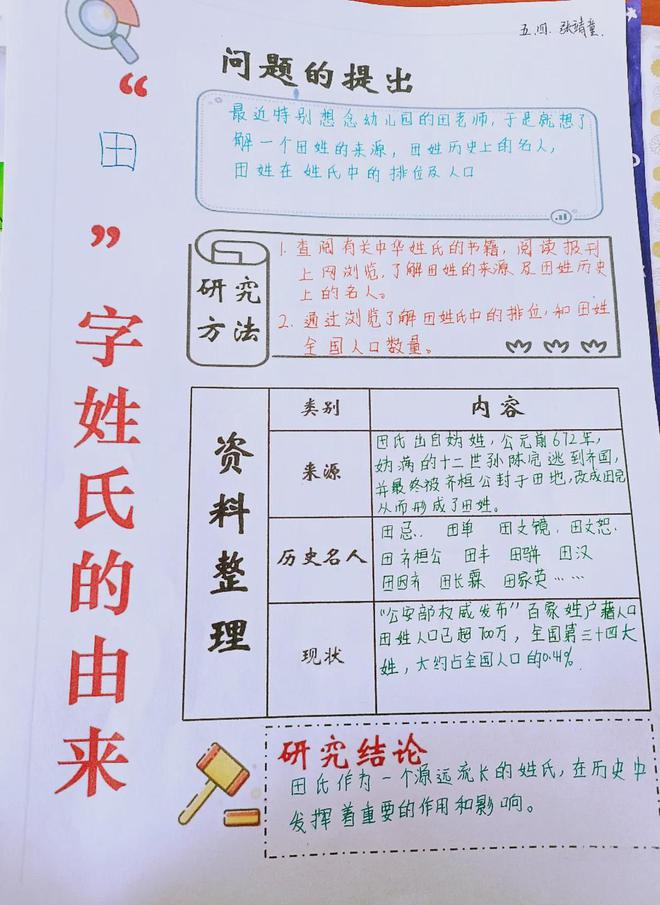 五.四. 张靖童.
“田”字姓氏的由来
问题的提出
最近特别想念幼儿园的田老师，于是就想了
解一个田姓的来源，田姓历史上的名人，
田姓在姓氏中的排位及人口
研究
方法
1. 查阅有关中华姓氏的书籍，阅读报刊
上网浏览，了解田姓的来源及田姓历史
上的名人。
2. 通过浏览了解田姓氏中的排位，和田姓
全国人口数量。
资料整理
类别
内容
来源
田氏出自妫姓，公元前672年，
妫满的十二世孙陈完逃到齐国，
并最终被齐桓公封于田地，改成田完
从而形成了田姓。
历史名人
田忌. 田单 田文镜. 田文恕.
田齐桓公 田丰 田骈 田汉
田因齐 田长霖 田家英……
现状
“公安部权威发布”百家姓户藉人口
田姓人口已超700万，全国第三十四大
姓，大约占全国人口的0.41%
研究结论
田氏作为一个源远流长的姓氏，在历史中
发挥着重要的作用和影响。